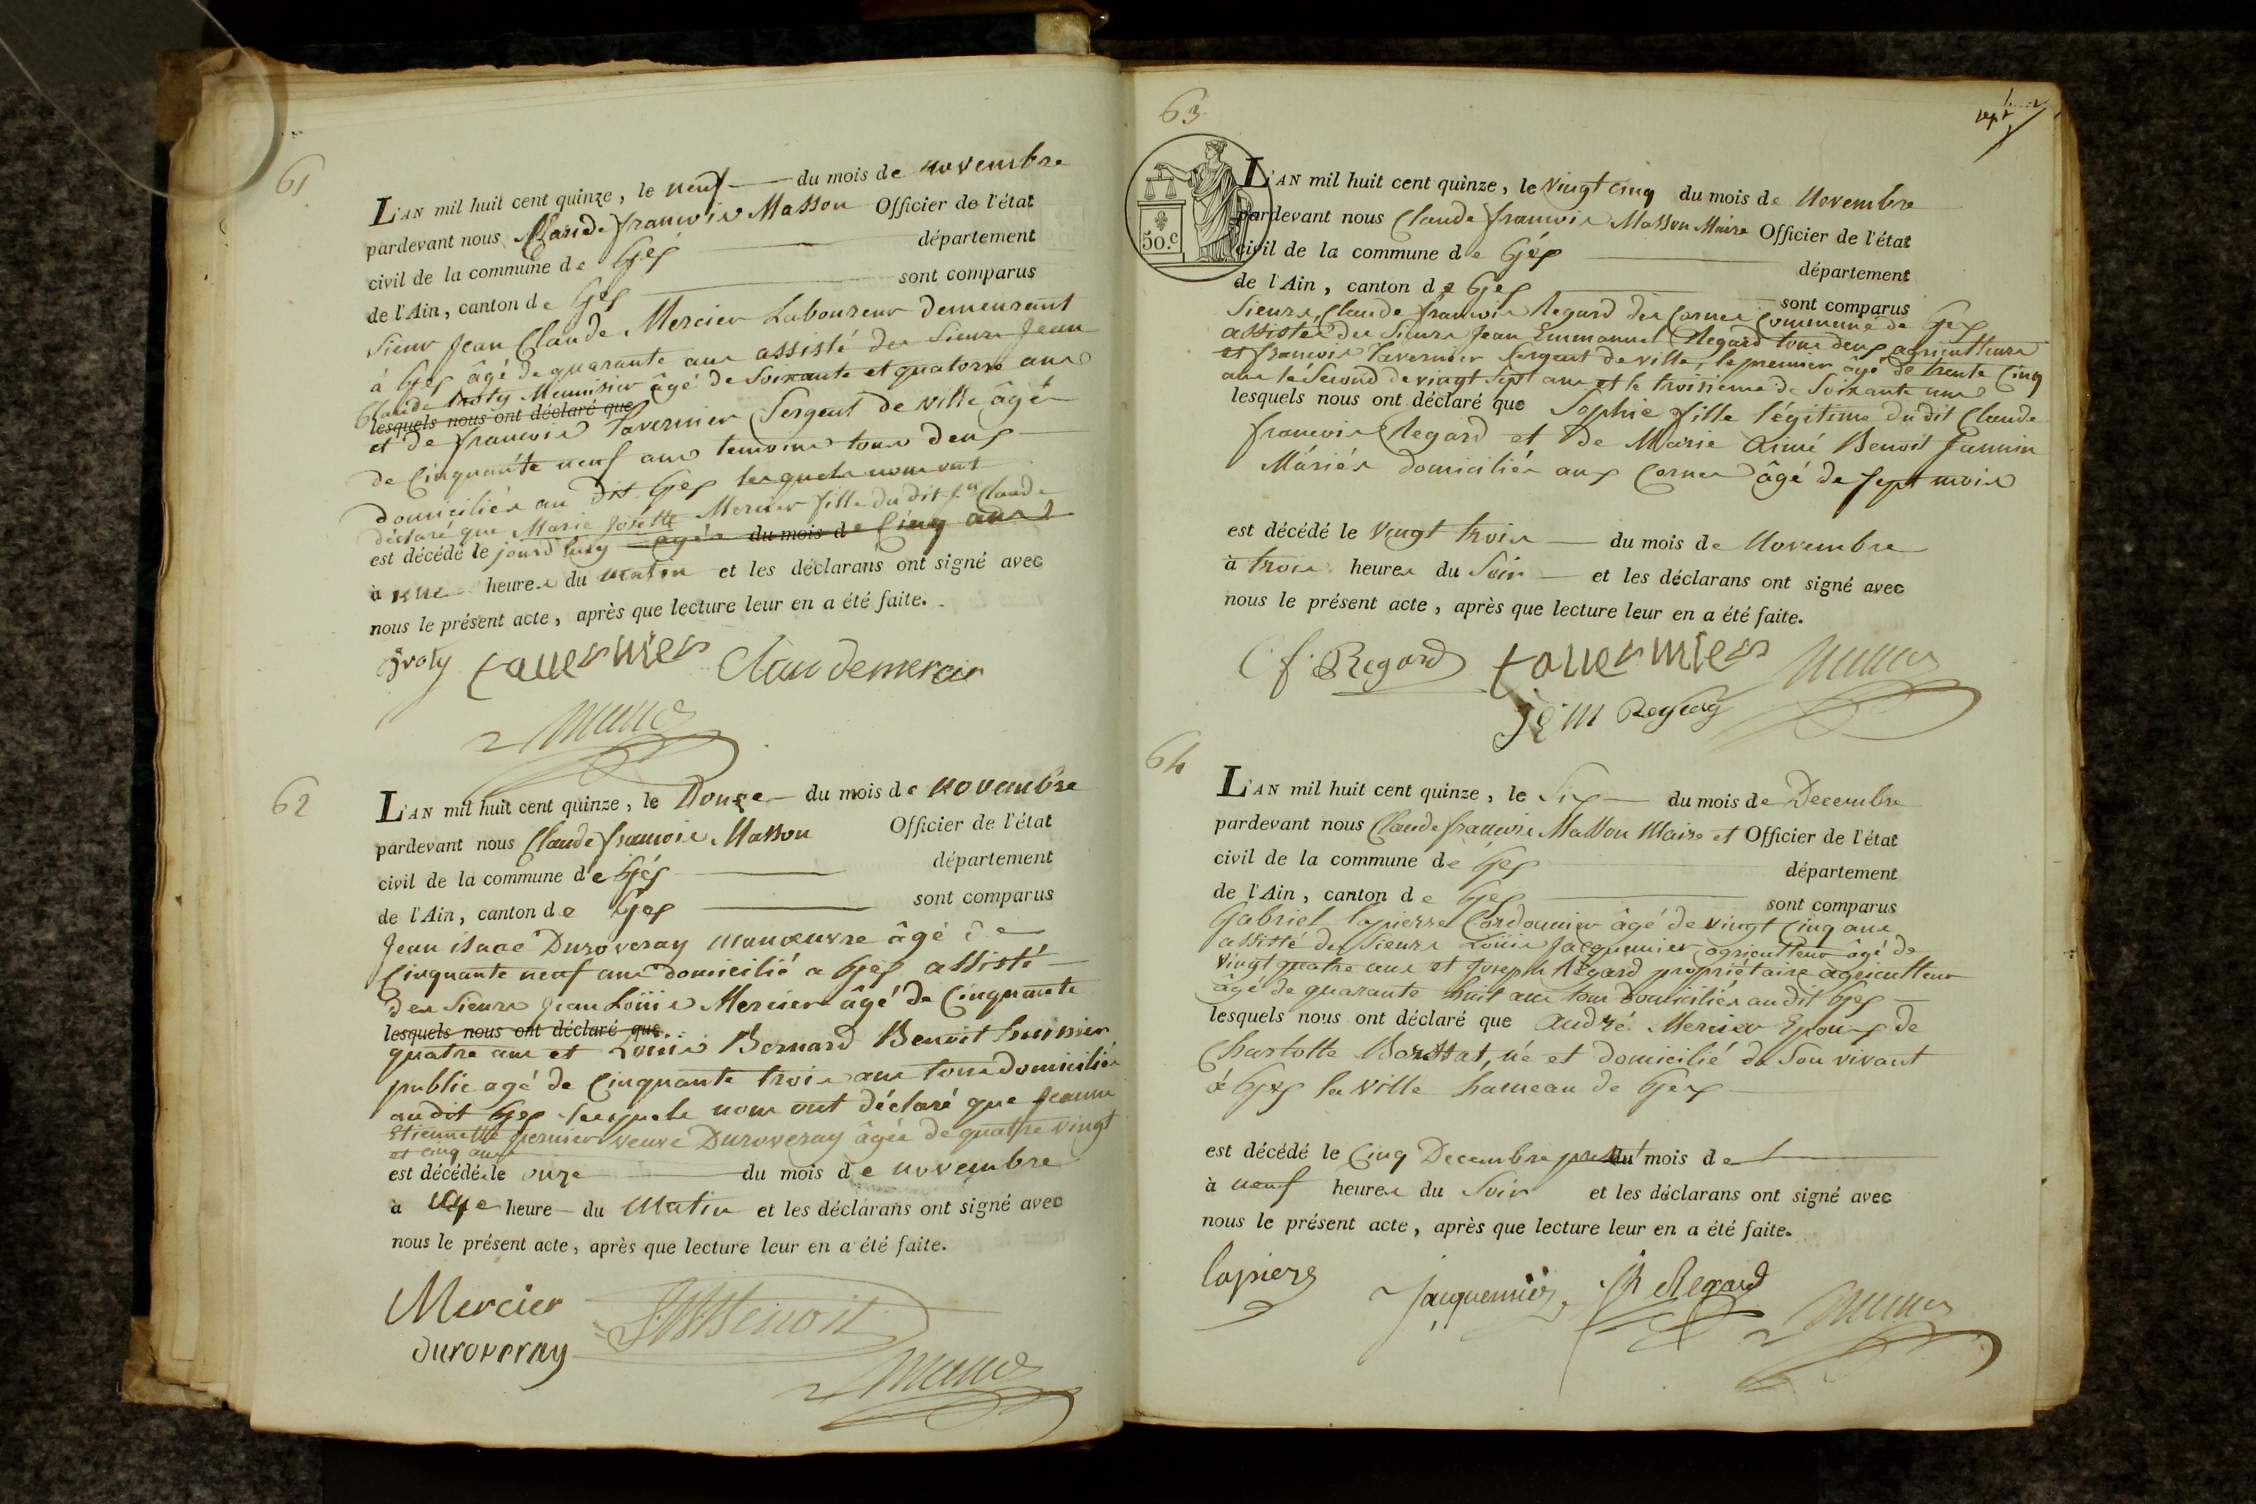 61
L'AN mil huit cent quinze, le neuf du mois de novembre
pardevant nous Claude françois Masson Officier de l'état
civil de la commune de Gex département
de l'Ain, canton de Gex sont comparus
Sieur Jean Claude Mercier Laboureur demeurant
à Gex âgé de quarante ans assisté des Sieurs Jean
Claude Menuisier âgé de Soixante et quatorze ans
lesquels nous ont déclaré que
et de françois Tavernier Sergent de ville âgé
de Cinquante neuf ans temoins tous deux
domiciliés au dit Gex lesquels nous ont
déclaré que Marie Josette Mercier fille du dit Jn Claude
est décédé le jourd'huy agée du mois de Cinq ans
à heures du matin et les déclarans ont signé avec
nous le présent acte, après que lecture leur en a été faite.
tavernier Claude mercier
62
L'AN mil huit cent quinze, le Douze du mois de novembre
pardevant nous Claude françois Masson Officier de l'état
civil de la commune de Gex département
de l'Ain, canton de Gex sont comparus
Jean isaac Duroveray manœuvre âgé de
Cinquante neuf ans domicilié a Gex assisté
des Sieurs Jean Loüis Mercier âgé de Cinquante
lesquels nous ont déclaré que
quatre ans et Louis Bernard Benoit huissier
public agé de Cinquante trois ans tous domiciliés
au dit Gex lesquels nous ont déclaré que Jeanne
Etiennette pernier veuve Duroveray âgée de quatre vingt
et cinq ans
est décédée le onze du mois de novembre
à heure du Matin et les déclarans ont signé avec
nous le présent acte, après que lecture leur en a été faite.
Mercier Benoit
duroveray
63
50.c
L'AN mil huit cent quinze, le Vingt cinq du mois de Novembre
pardevant nous Claude francois Masson Maire Officier de l'état
civil de la commune de Gex département
de l'Ain, canton de Gex sont comparus
Sieurs, Claude françois Regard des Cornes Commune de Gex
assisté des Sieurs Jean Emmanuel Regard tous deux agriculteurs
et françois Tavernier Sergent de ville, le premier âgé de trente Cinq
ans le Second de vingt Sept ans et le troisieme de Soixante uns
lesquels nous ont déclaré que Sophie fille légitime du dit Claude
francois Regard et de Marie Aimé Benoit Jeannin
Mariés domiciliés aux Cornes âgé de Sept mois
est décédé le Vingt trois du mois de Novembre
à trois heures du Soir et les déclarans ont signé avec
nous le présent acte, après que lecture leur en a été faite.
C. f. Regard tavernier
64
L'AN mil huit cent quinze, le Six du mois de Decembre
pardevant nous Claude francois Masson Maire et Officier de l'état
civil de la commune de Gex département
de l'Ain, canton de Gex sont comparus
Gabriel lapierre Cordonnier âgé de vingt Cinq ans
assisté des Sieurs Loüis Jacquemier agriculteur âgé de
vingt quatre ans et Joseph Regard propriétaire agriculteur
âgé de quarante huit ans tous domiciliés au dit Gex
lesquels nous ont déclaré que André Mercier Epoux de
Charlotte né et domicilié de Son vivant
à Gex la ville hameau de Gex
est décédé le Cinq Decembre du mois de
à neuf heures du Soir et les déclarans ont signé avec
nous le présent acte, après que lecture leur en a été faite.
lapierre Jacquemier Regard